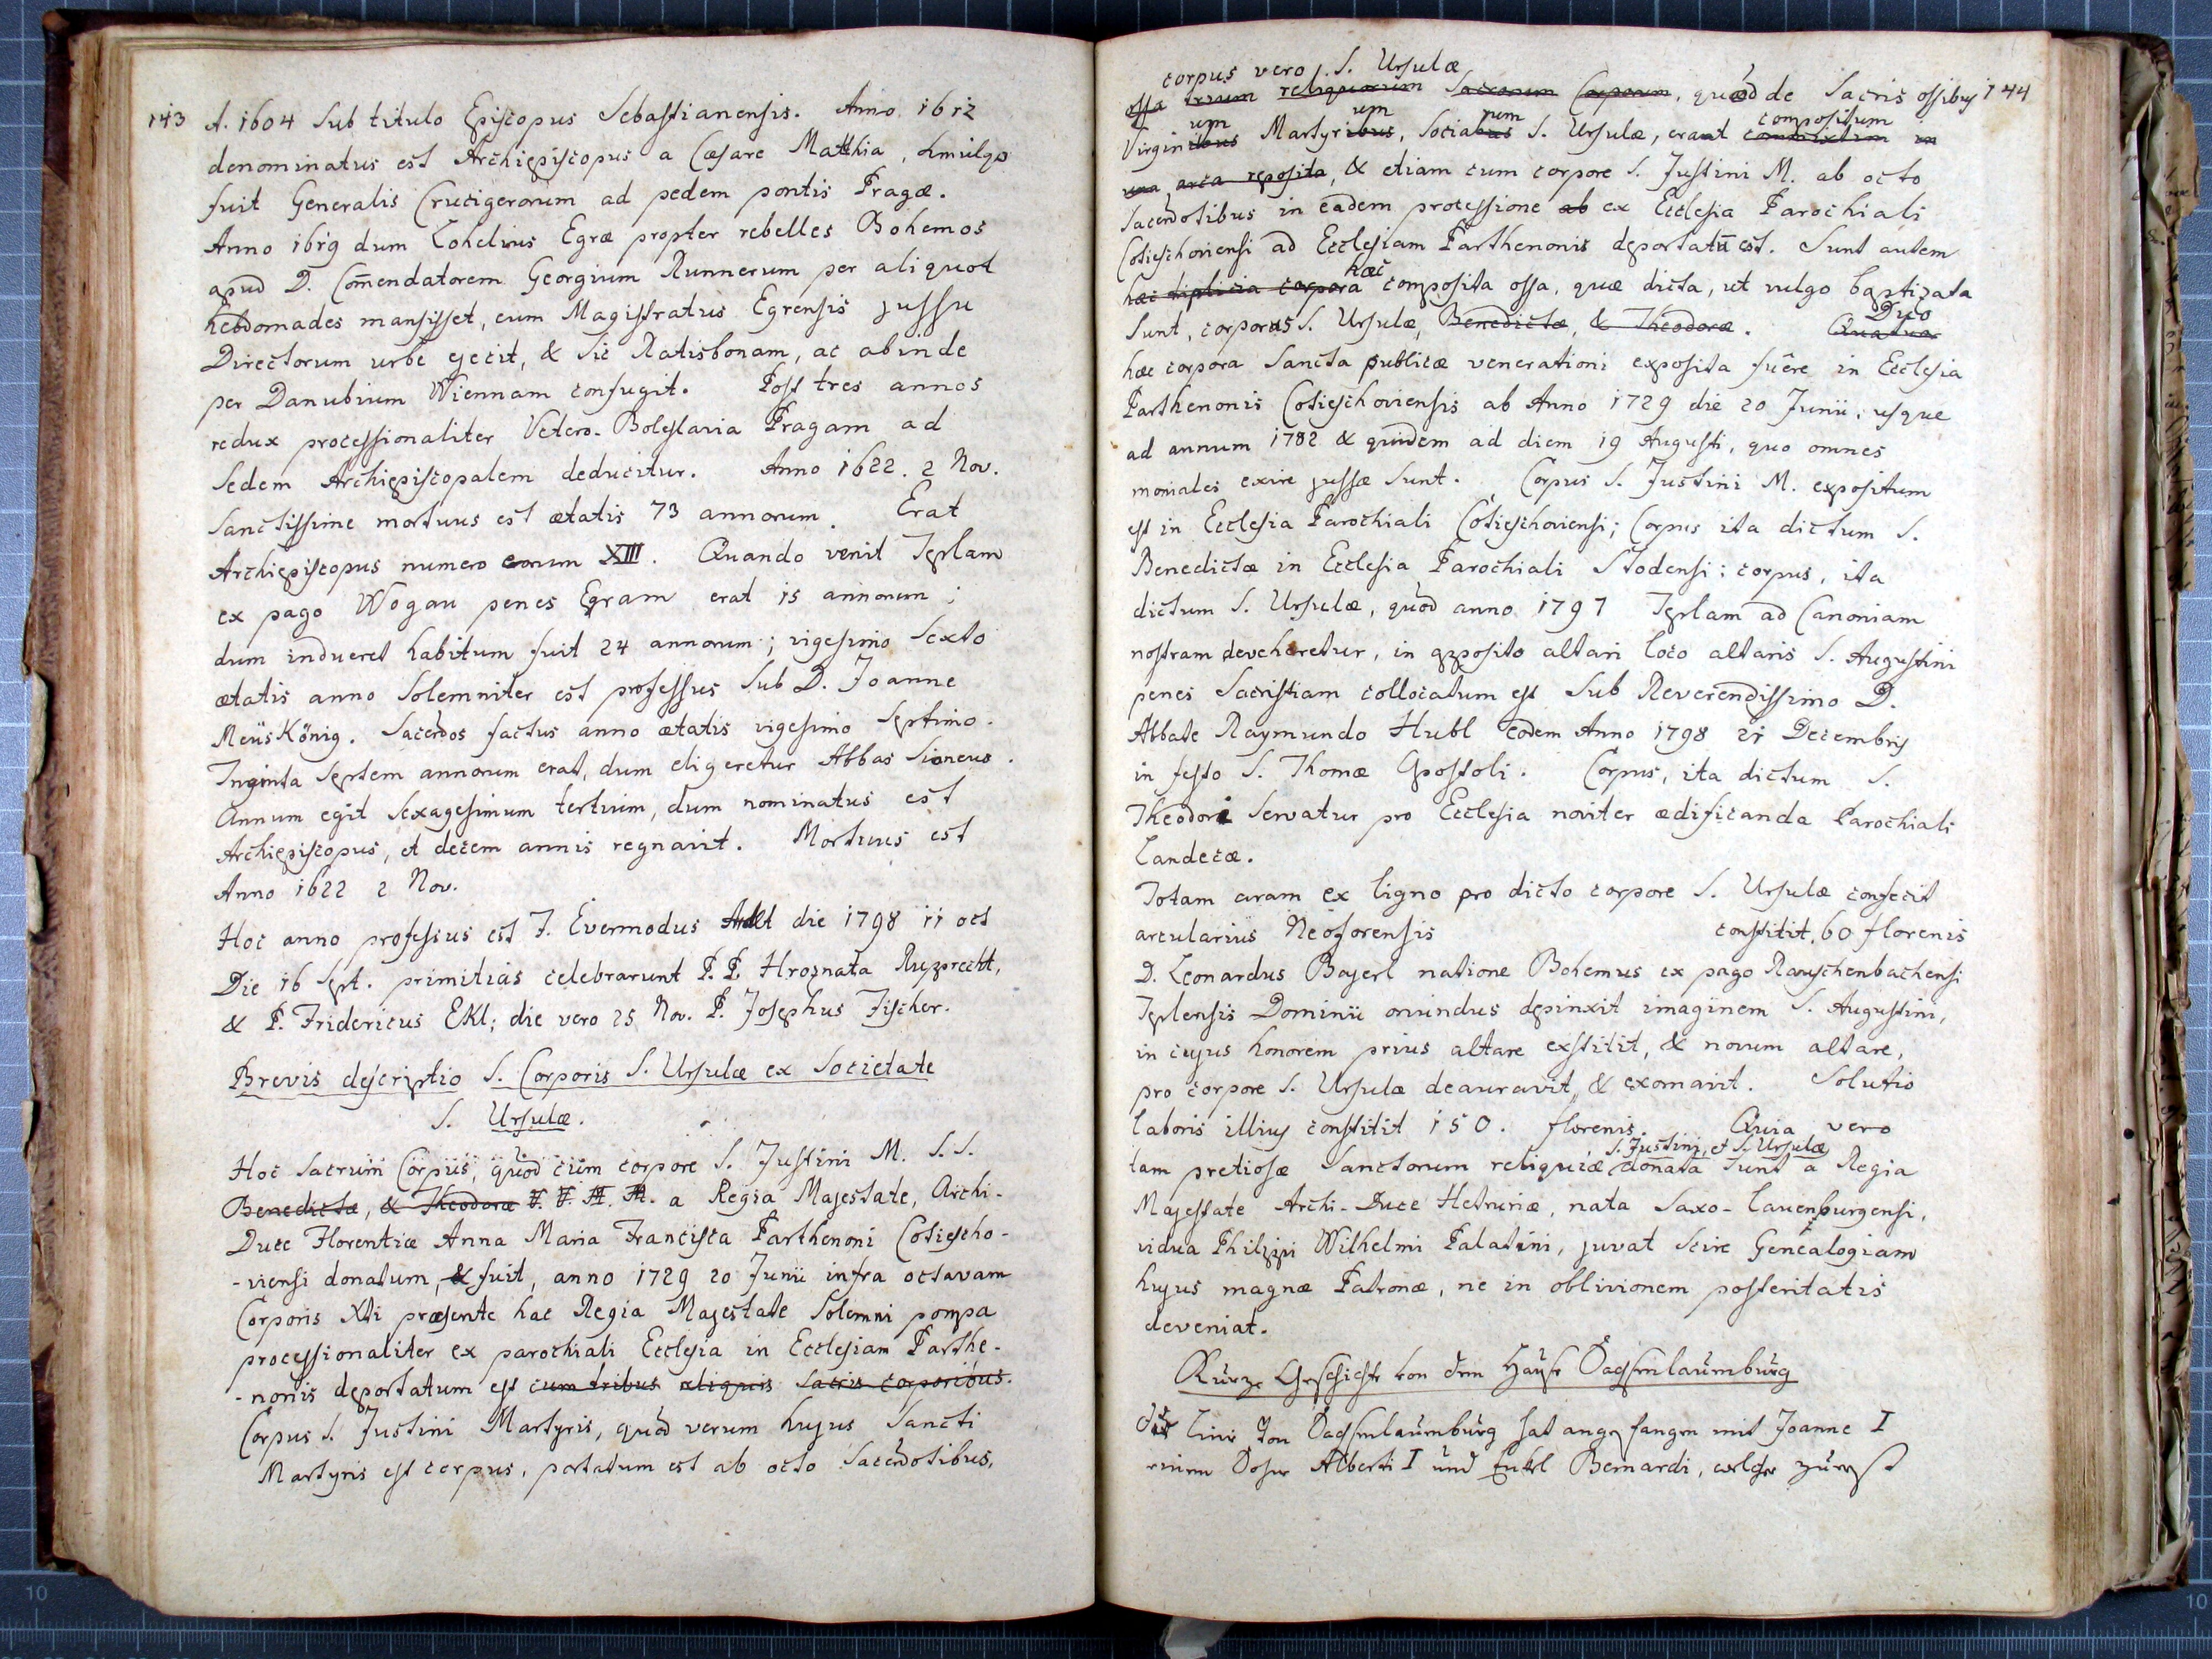 143
A. 1604 Sub titulo Episcopus Sebastianensis. Anno 1612
denominatus est Archiepiscopus a Cæsare Matthia, simulqз
fuit Generalis Crucigerorum ad pedem pontis Pragæ.
Anno 1619 dum Lohelius Egræ propter rebelles Bohemos
apud D. Com̄endatorem Georgium Runnerum per aliquot
hebdomades mansisset, eum Magistratus Egrensis jussu
Directorum urbe ejecit, & sic Ratisbonam, ac abinde
per Danubium Wiennam confugit. Post tres annos
redux processionaliter Vetero-Boleslavia Pragam ad
Sedem Archiepiscopalem deducitur. Anno 1622. 2 Nov.
Sanctissime mortuus est ætatis 73 annorum. Erat
Archiepiscopus numero eorum XIII. Quando venit Teplam
ex pago Wogau penes Egram erat 15 annorum;
dum indueret habitum fuit 24 annorum; vigesimo Sexto
ætatis anno Solemniter est professus Sub D. Joanne
MeüsKönig. Sacerdos factus anno ætatis vigesimo Septimo.
Triginta Septem annorum erat, dum eligeretur Abbas Sioneus.
Annum egit Sexagesimum tertium, dum nominatus est
Archiepiscopus, et decem annis regnavit. Mortuus est
Anno 1622 2 Nov.
Hoc anno professus est F. Evermodus Adlt die 1798 11 oct
Die 16 Sept. primitias celebrarunt P.P. Hroznata Rupprecht,
& P. Fridericus EKl; die vero 25 Nov. P. Josephus Fischer.
Brevis descriptio S. Corporis S. Ursulæ ex Societate
S. Ursulæ.
Hoc Sacrum Corpus, quod cum corpore S. Justini M. S.S.
Benedictæ, & Theodoræ V. V. M. M. a Regia Majestate, Archi-
Duce Florentiæ Anna Maria Francisca Parthenoni Cotiescho-
-viensi donatum, & fuit, anno 1729 20 Junii infra octavam
Corporis Xti præsente hac Regia Majestate Solemni pompa
processionaliter ex parochiali Ecclesia in Ecclesiam Parthe-
-nonis deportatum est cum tribus reliquis Sacris corporibus.
Corpus S. Justini Martyris, quod verum hujus Sancti
Martyris est corpus, portatum est ab octo Sacerdotibus,
144
corpus vero S. Ursulæ
ossa trium reliquorum Sacrorum Corporum, quod de Sacris ossibus
um um rum compositum
Virginibus Martyribus, Sociabus S. Ursulæ, erant commixtim in
una arca reposita, & etiam cum corpore S. Justini M. ab octo
Sacerdotibus in eadem processione ab ex Ecclesia Parochiali
Cotieschoviensi ad Ecclesiam Parthenonis deportatū est. Sunt autem
hæc
hæc triplicia corpora composita ossa, quæ dicta, ut vulgo baptizata
Duo
Sunt, corpus S. Ursulæ, Benedictæ, & Theodoræ. Quatuor
hæc corpora Sancta publicæ venerationi exposita fuêre in Ecclesia
Parthenonis Cotieschoviensis ab Anno 1729 die 20 Junii, usque
ad annum 1782 & quidem ad diem 19 Augusti, quo omnes
moniales exire jussæ Sunt. Corpus S. Justini M. expositum
est in Ecclesia Parochiali Cotieschoviensi; Corpus ita dictum S.
Benedictæ in Ecclesia Parochiali Stodensi; corpus, ita
dictum S. Ursulæ, quod anno 1797 Teplam ad Canoniam
nostram deveheretur, in apposito altari loco altaris S. Augustini
penes Sacristiam collocatum est Sub Reverendissimo D.
Abbate Raymundo Hubl eodem Anno 1798 21 Decembris
in festo S. Thomæ Apostoli. Corpus, ita dictum S.
Theodori Servatur pro Ecclesia noviter ædificanda Parochiali
Landecæ.
Totam aram ex ligno pro dicto corpore S. Ursulæ confecit
arcularius Neoforensis constitit 60 florenis
D. Leonardus Bayerl natione Bohemus ex pago Rauschenbachensi
Teplensis Dominii oriundus depinxit imaginem S. Augustini,
in cujus honorem prius altare exstitit, & novum altare,
pro corpore S. Ursulæ deauravit, & exornavit. Solutio
laboris illius constitit 150. florenis. Quia vero
S. Justini, et S. Ursulæ
tam pretiosæ Sanctorum reliquiæ donata Sunt a Regia
Majestate Archi-Duce Hetruriæ, nata Saxo-Lauenburgensi,
vidua Philippi Wilhelmi Palatini, juvat Scire Genealogiam
hujus magnæ Patronæ, ne in oblivionem posteritatis
deveniat.
Kurze Geschichte von dem Hause Sachsenlaumburg
Die Linie von Sachsenlaumburg hat angefangen mit Joanne I
einem Sohne Alberti I und Enkel Bernardi, welcher zuerst